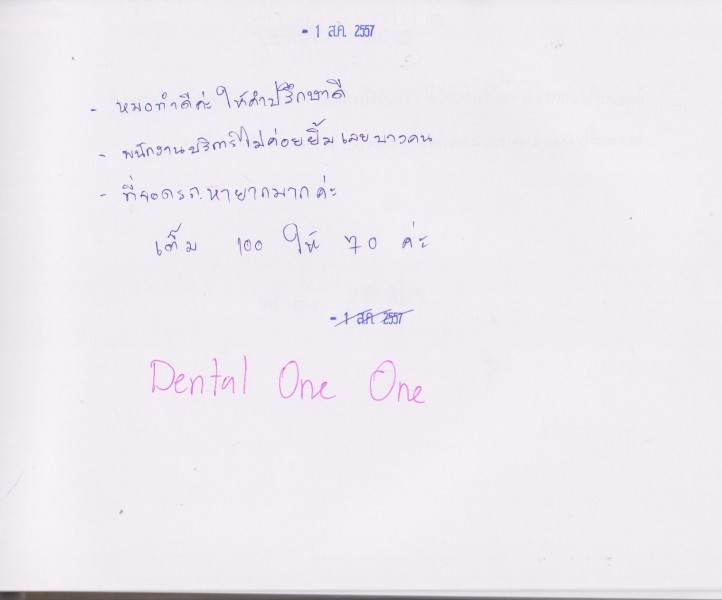 - 1 ส.ค. 2557
- หมอทำดีค่ะ ให้คำปรึกษาดี
- พนักงานบริการไม่ค่อยยิ้มเลยบางคน
- ที่จอดรถหายากมากค่ะ
เต็ม 100 ให้ 70 ค่ะ
- 1 ส.ค. 2557
Dental One One